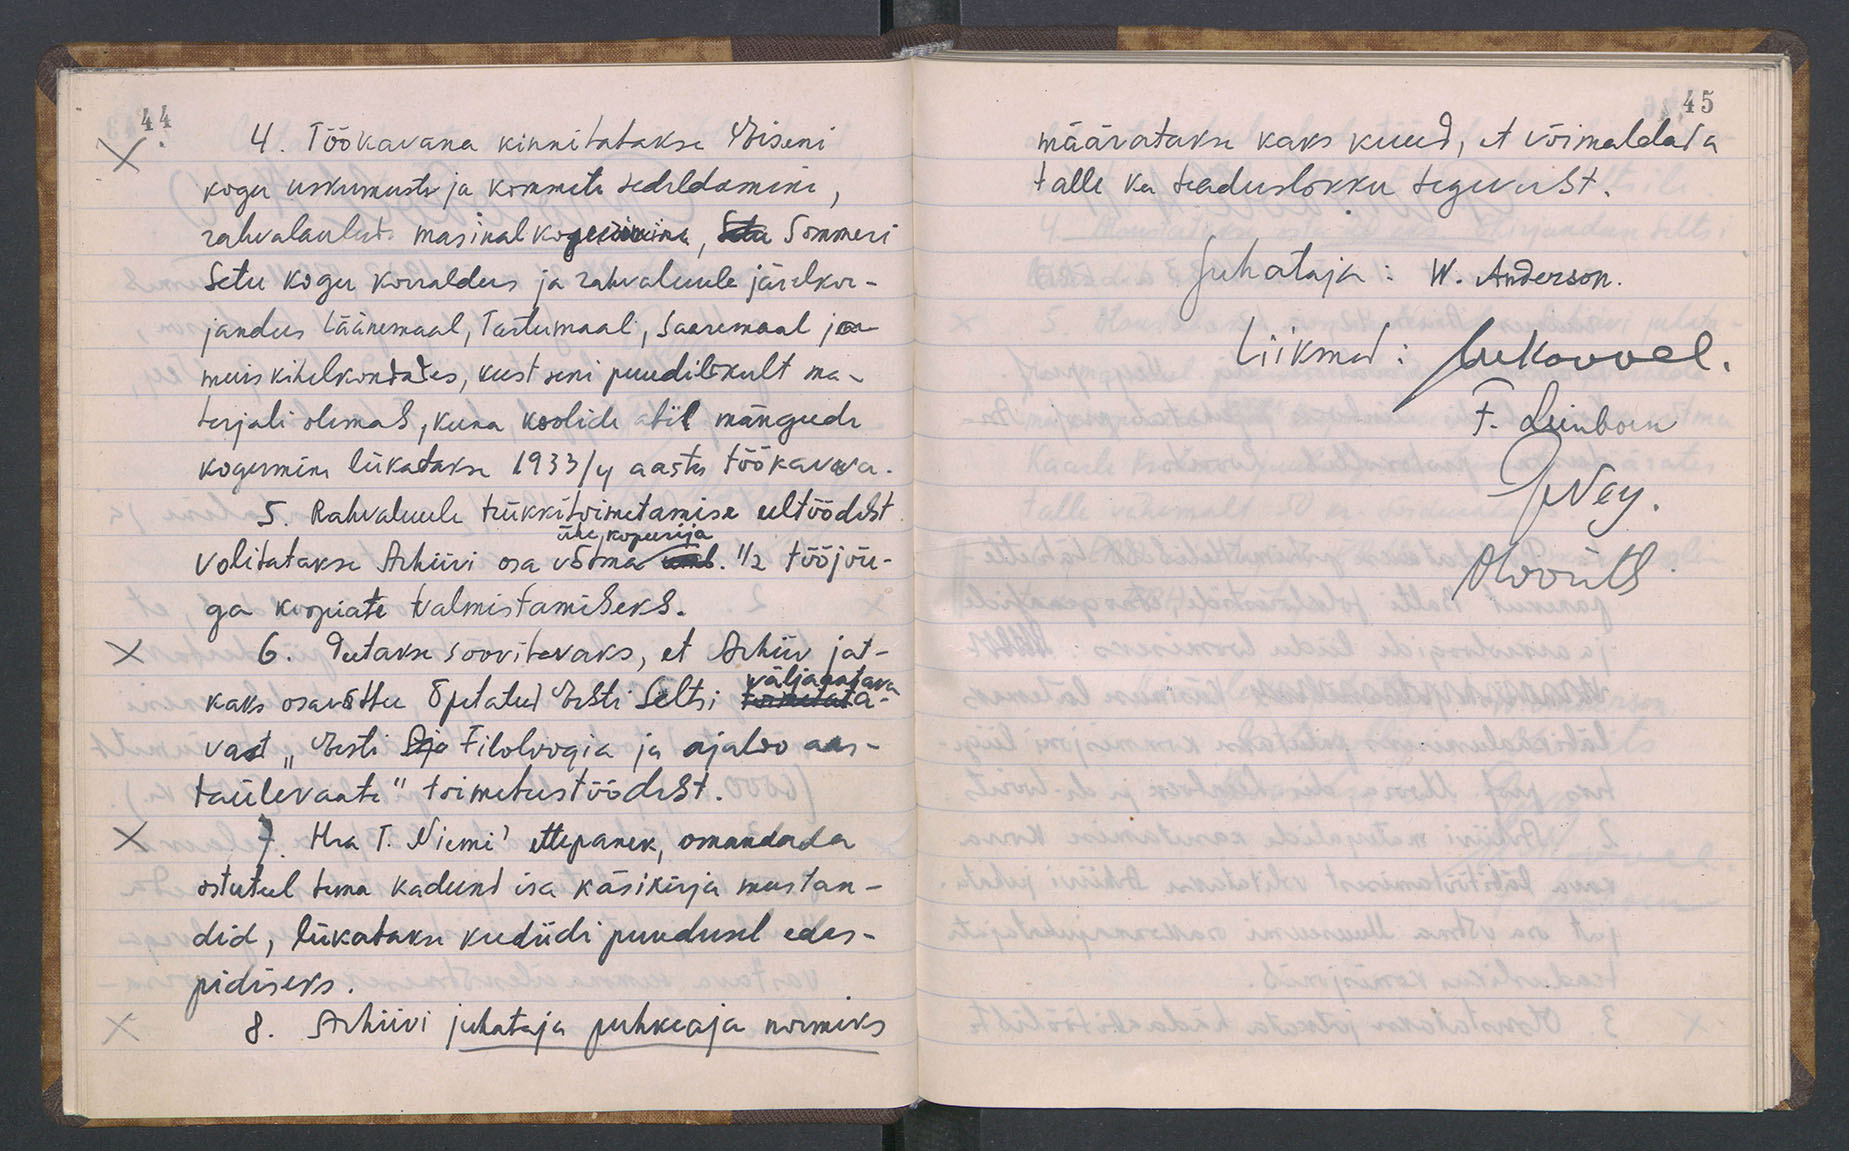 44
4. Töökavana kinnitatakse Eiseni
kogu uskumuste ja kommete sedeldamine,
rahvalaulude masinal kopeerimine, Setu Sommeri
Setu kogu korraldus ja rahvaluule järelkor-
jandus Läänemaal, Tartumaal, Saaremaal ja
neis kihelkondades, kust seni puudulikult ma-
terjali olemas, kuna koolide abil mängude
kogumine lükatakse 1933/4 aasta töökavva.
5. Rahvaluule trükkitoimetamise eeltöödest
ühe kopeerija
volitatakse Arhiivi osa võtma 1/2 tööjõu-
ga koopiate valmistamiseks.
6. Peetakse soovitavaks, et Arhiiv jät-
väljaantava
kaks osavõttu Õpetatud Eesti Seltsi toimetata-
vast „Eesti Filoloogia ja ajaloo aas-
taülevaate" toimetustöödest.
7. Hra T. Niemi' ettepanek, omandada
ostuteel tema kadund isa käsikirja mustan-
did, lükatakse krediidi puudusel edas-
pidiseks.
8. Arhiivi juhataja puhkeaja normiks
45
määratakse kaks kuud, et võimaldada
talle ka teaduslikku tegevust.
Juhataja: W. Anderson.
Liikmed:
F. Leinbock
Ney.
O. Loorits.